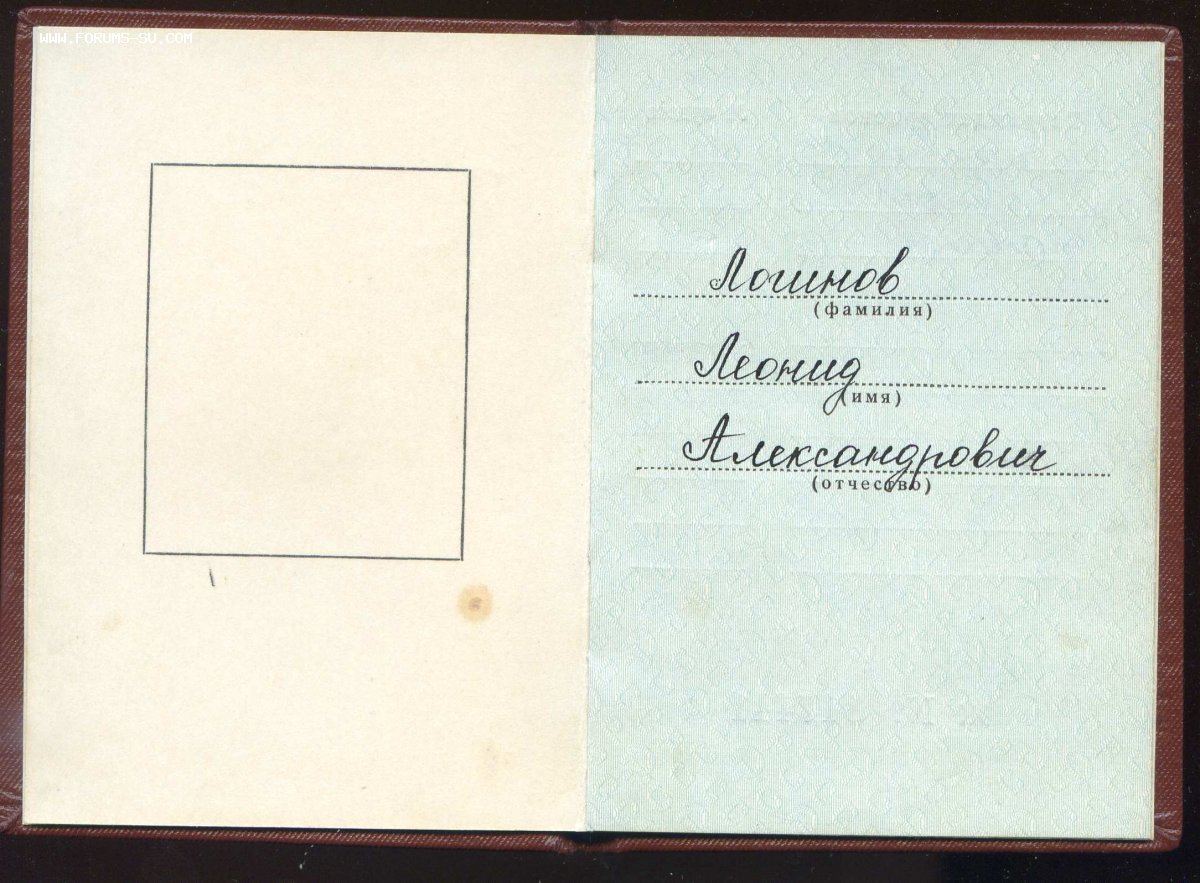 WWW.FORUMS-SU.COM
Логинов
(фамилия)
Леонид
(имя)
Александрович
(отчество)